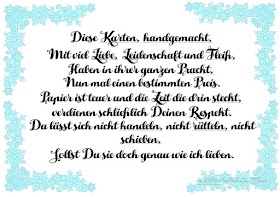 Diese Karten, handgemacht,
Mit viel Liebe, Leidenschaft und Fleiß,
Haben in ihrer ganzen Pracht,
Nun mal einen bestimmten Preis.
Papier ist teuer und die Zeit die drin steckt,
verdienen schließlich Deinen Respekt.
Da lässt sich nicht handeln, nicht rütteln, nicht
schieben,
Sollst Du sie doch genau wie ich lieben.